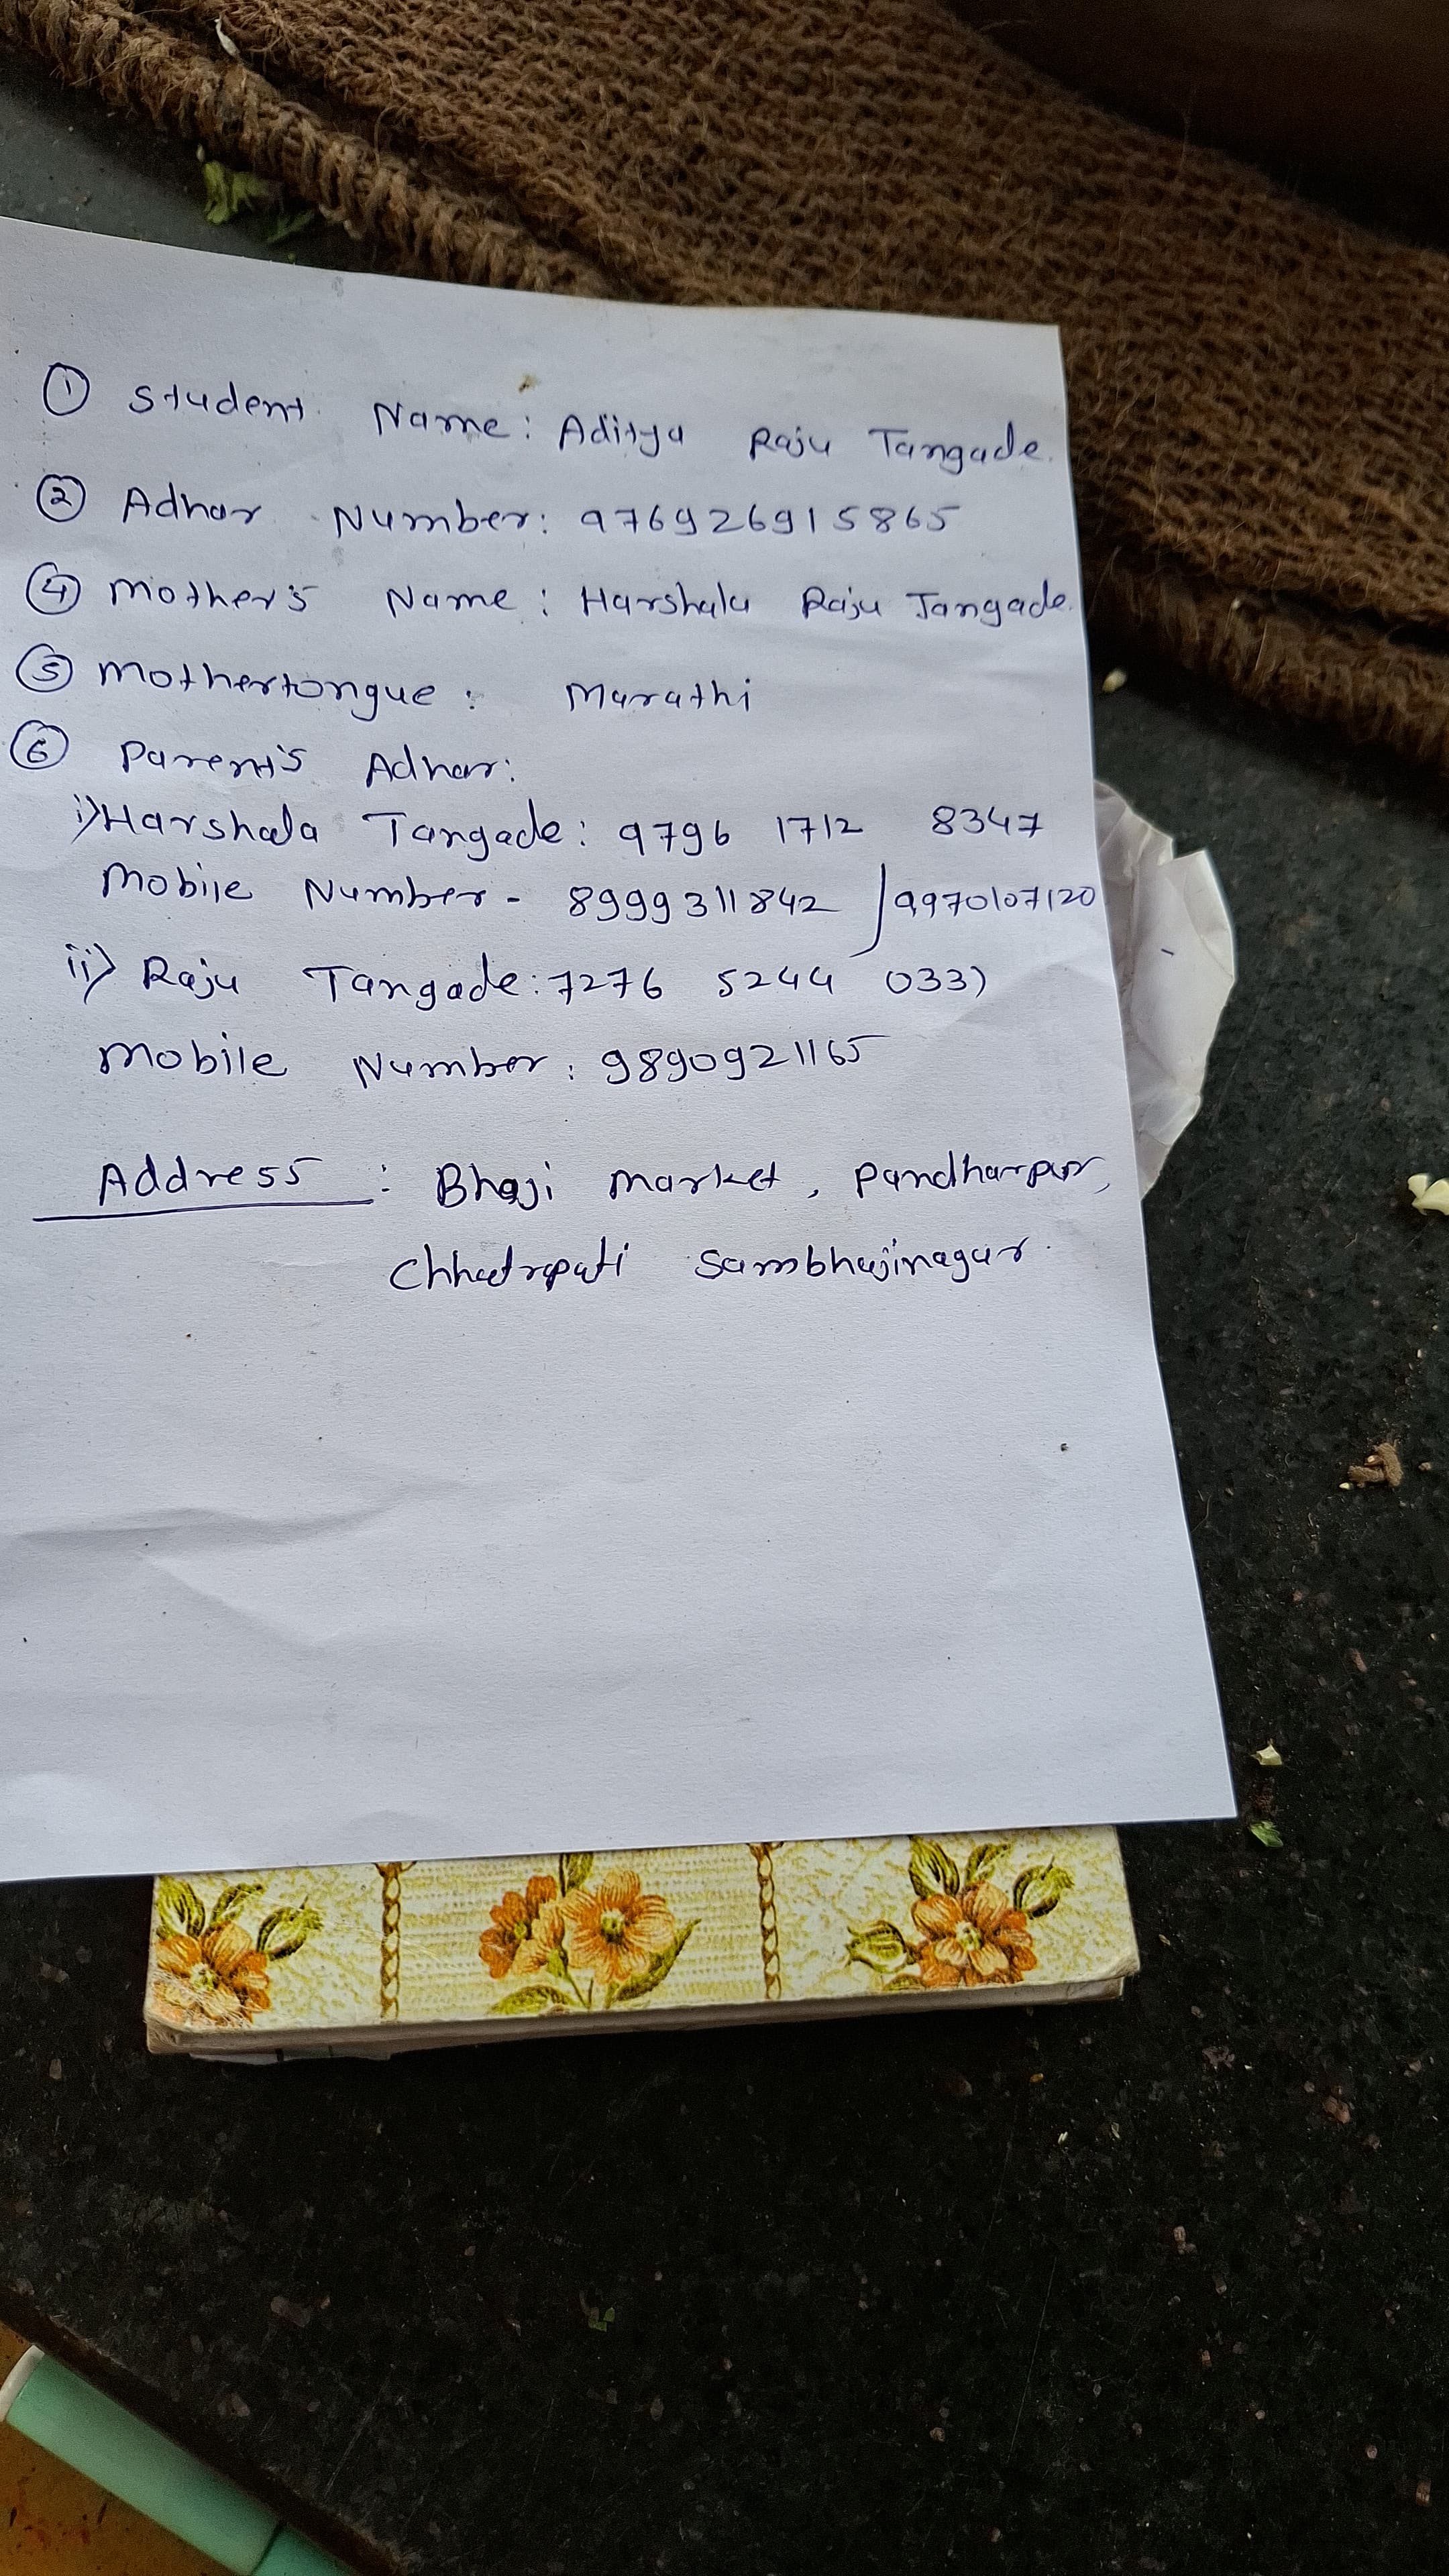 ① Student Name: Aditya Raju Tangade.
② Adhar Number: 976926915865
④ Mother's Name: Harshala Raju Tangade.
⑤ Mothertongue: Marathi
⑥ Parent's Adhar:
i) Harshala Tangade: 9796 1712 8347
Mobile Number - 8999311842 / 9970107120
ii) Raju Tangade: 7276 5244 0331
Mobile Number: 9890921165
Address: Bhaji Market, Pandharpur,
Chhatrapati Sambhajinagar.